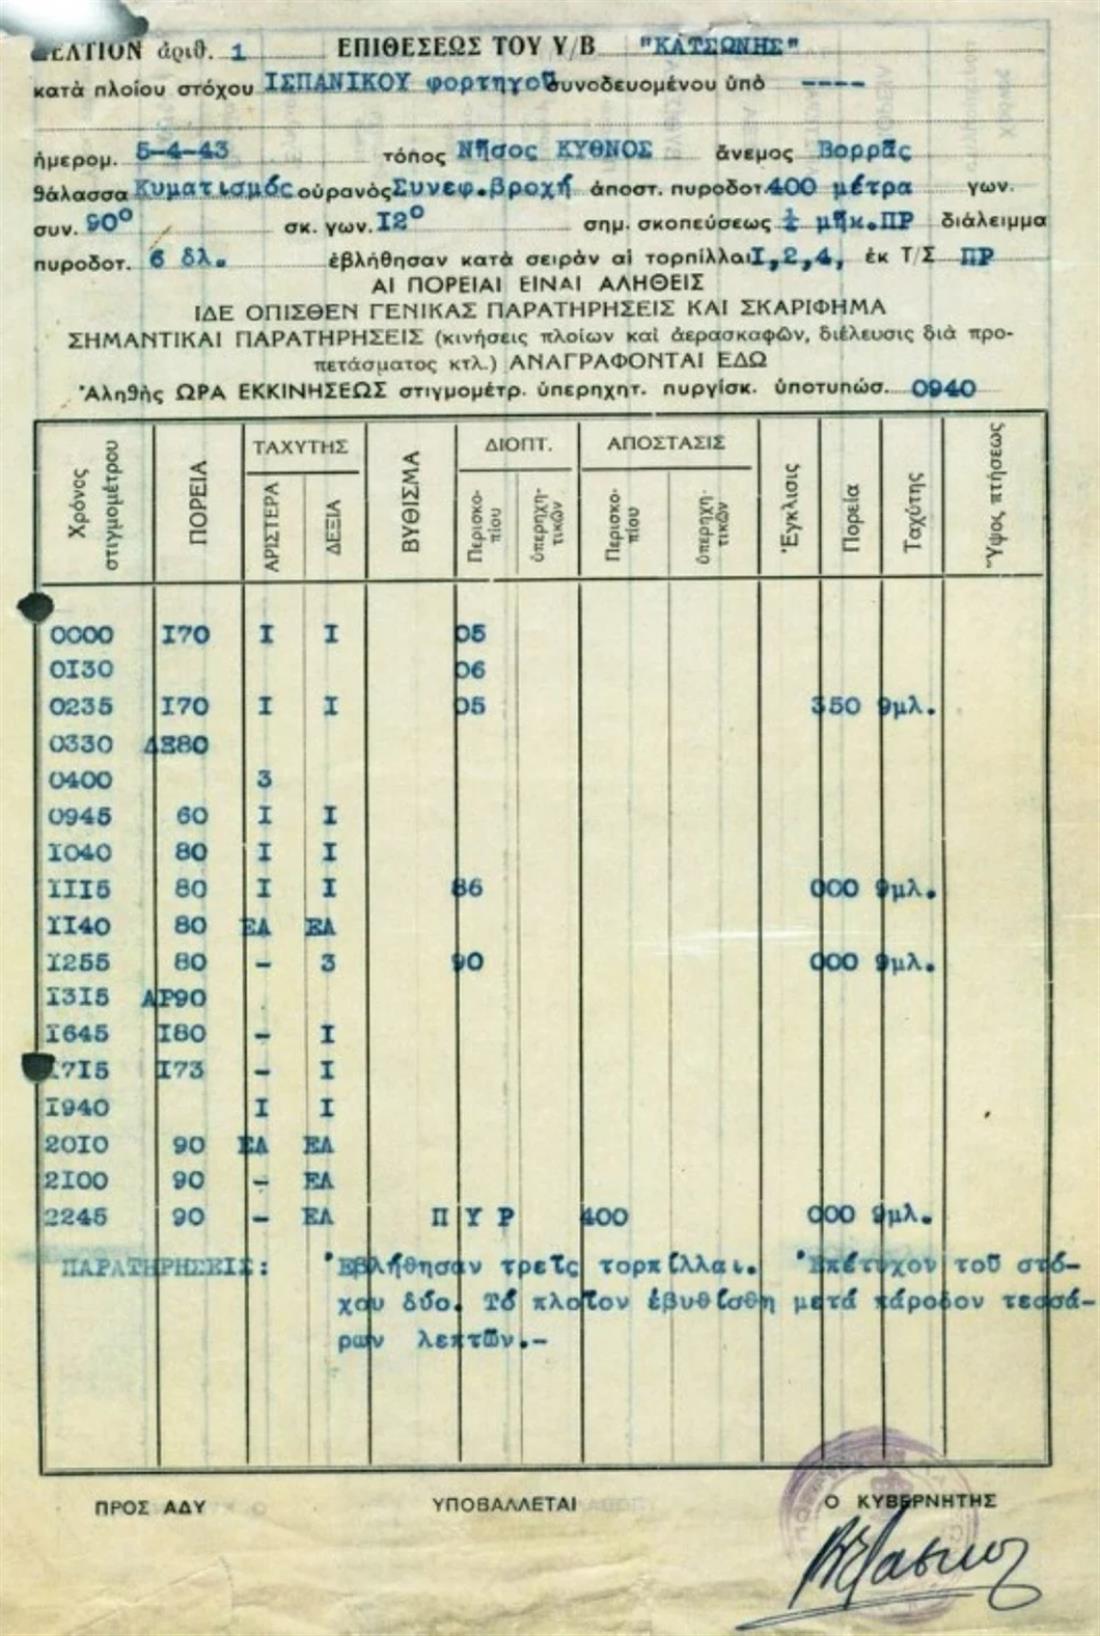 ΔΕΛΤΙΟΝ ἀριθ. 1 ΕΠΙΘΕΣΕΩΣ ΤΟΥ Υ/Β "ΚΑΤΣΩΝΗΣ"
κατὰ πλοίου στόχου ΙΣΠΑΝΙΚΟΥ φορτηγοῦ συνοδευομένου ὑπὸ ----
ἡμερομ. 5-4-43 τόπος Νῆσος ΚΥΘΝΟΣ ἄνεμος Βορρᾶς
θάλασσα Κυματισμός οὐρανὸς Συνεφ.βροχή ἀποστ. πυροδοτ. 400 μέτρα γων.
συν. 90° σκ. γων. Ι2° σημ. σκοπεύσεως ½ μῆκ.ΠΡ διάλειμμα
πυροδοτ. 6 δλ. ἐβλήθησαν κατὰ σειρὰν αἱ τορπίλλαι Ι,2,4, ἐκ Τ/Σ ΠΡ
ΑΙ ΠΟΡΕΙΑΙ ΕΙΝΑΙ ΑΛΗΘΕΙΣ
ΙΔΕ ΟΠΙΣΘΕΝ ΓΕΝΙΚΑΣ ΠΑΡΑΤΗΡΗΣΕΙΣ ΚΑΙ ΣΚΑΡΙΦΗΜΑ
ΣΗΜΑΝΤΙΚΑΙ ΠΑΡΑΤΗΡΗΣΕΙΣ (κινήσεις πλοίων καὶ ἀεροσκαφῶν, διέλευσις διὰ προ-
πετάσματος κτλ.) ΑΝΑΓΡΑΦΟΝΤΑΙ ΕΔΩ
Ἀληθὴς ΩΡΑ ΕΚΚΙΝΗΣΕΩΣ στιγμομέτρ. ὑπερηχητ. πυργίσκ. ὑποτυπώσ. 0940
Χρόνος στιγμομέτρου ΠΟΡΕΙΑ ΤΑΧΥΤΗΣ ΒΥΘΙΣΜΑ ΔΙΟΠΤ. ΑΠΟΣΤΑΣΙΣ Ἔγκλισις Πορεία Ταχύτης Ὕψος πτήσεως
ΑΡΙΣΤΕΡΑ ΔΕΞΙΑ Περισκοπίου ὑπερηχητικῶν Περισκοπίου ὑπερηχητικῶν
0000 Ι70 Ι Ι 05
0Ι30 06
0235 Ι70 Ι Ι 05 350 9μλ.
0330 ΔΕ80
0400 3
0945 60 Ι Ι
Ι040 80 Ι Ι
ΙΙΙ5 80 Ι Ι 86 000 9μλ.
ΙΙ40 80 ΕΛ ΕΛ
Ι255 80 - 3 90 000 9μλ.
Ι3Ι5 ΑΡ90
Ι645 Ι80 - Ι
Ι7Ι5 Ι73 - Ι
Ι940 Ι Ι
20Ι0 90 ΕΛ ΕΛ
2Ι00 90 - ΕΛ
2245 90 - ΕΛ Π Υ Ρ 400 000 9μλ.
ΠΑΡΑΤΗΡΗΣΕΙΣ: Ἐβλήθησαν τρεῖς τορπίλλαι. Ἐπέτυχον τοῦ στό-
χου δύο. Τό πλοῖον ἐβυθίσθη μετά πάροδον τεσσά-
ρων λεπτῶν.-
ΠΡΟΣ ΑΔΥ ΥΠΟΒΑΛΛΕΤΑΙ Ο ΚΥΒΕΡΝΗΤΗΣ